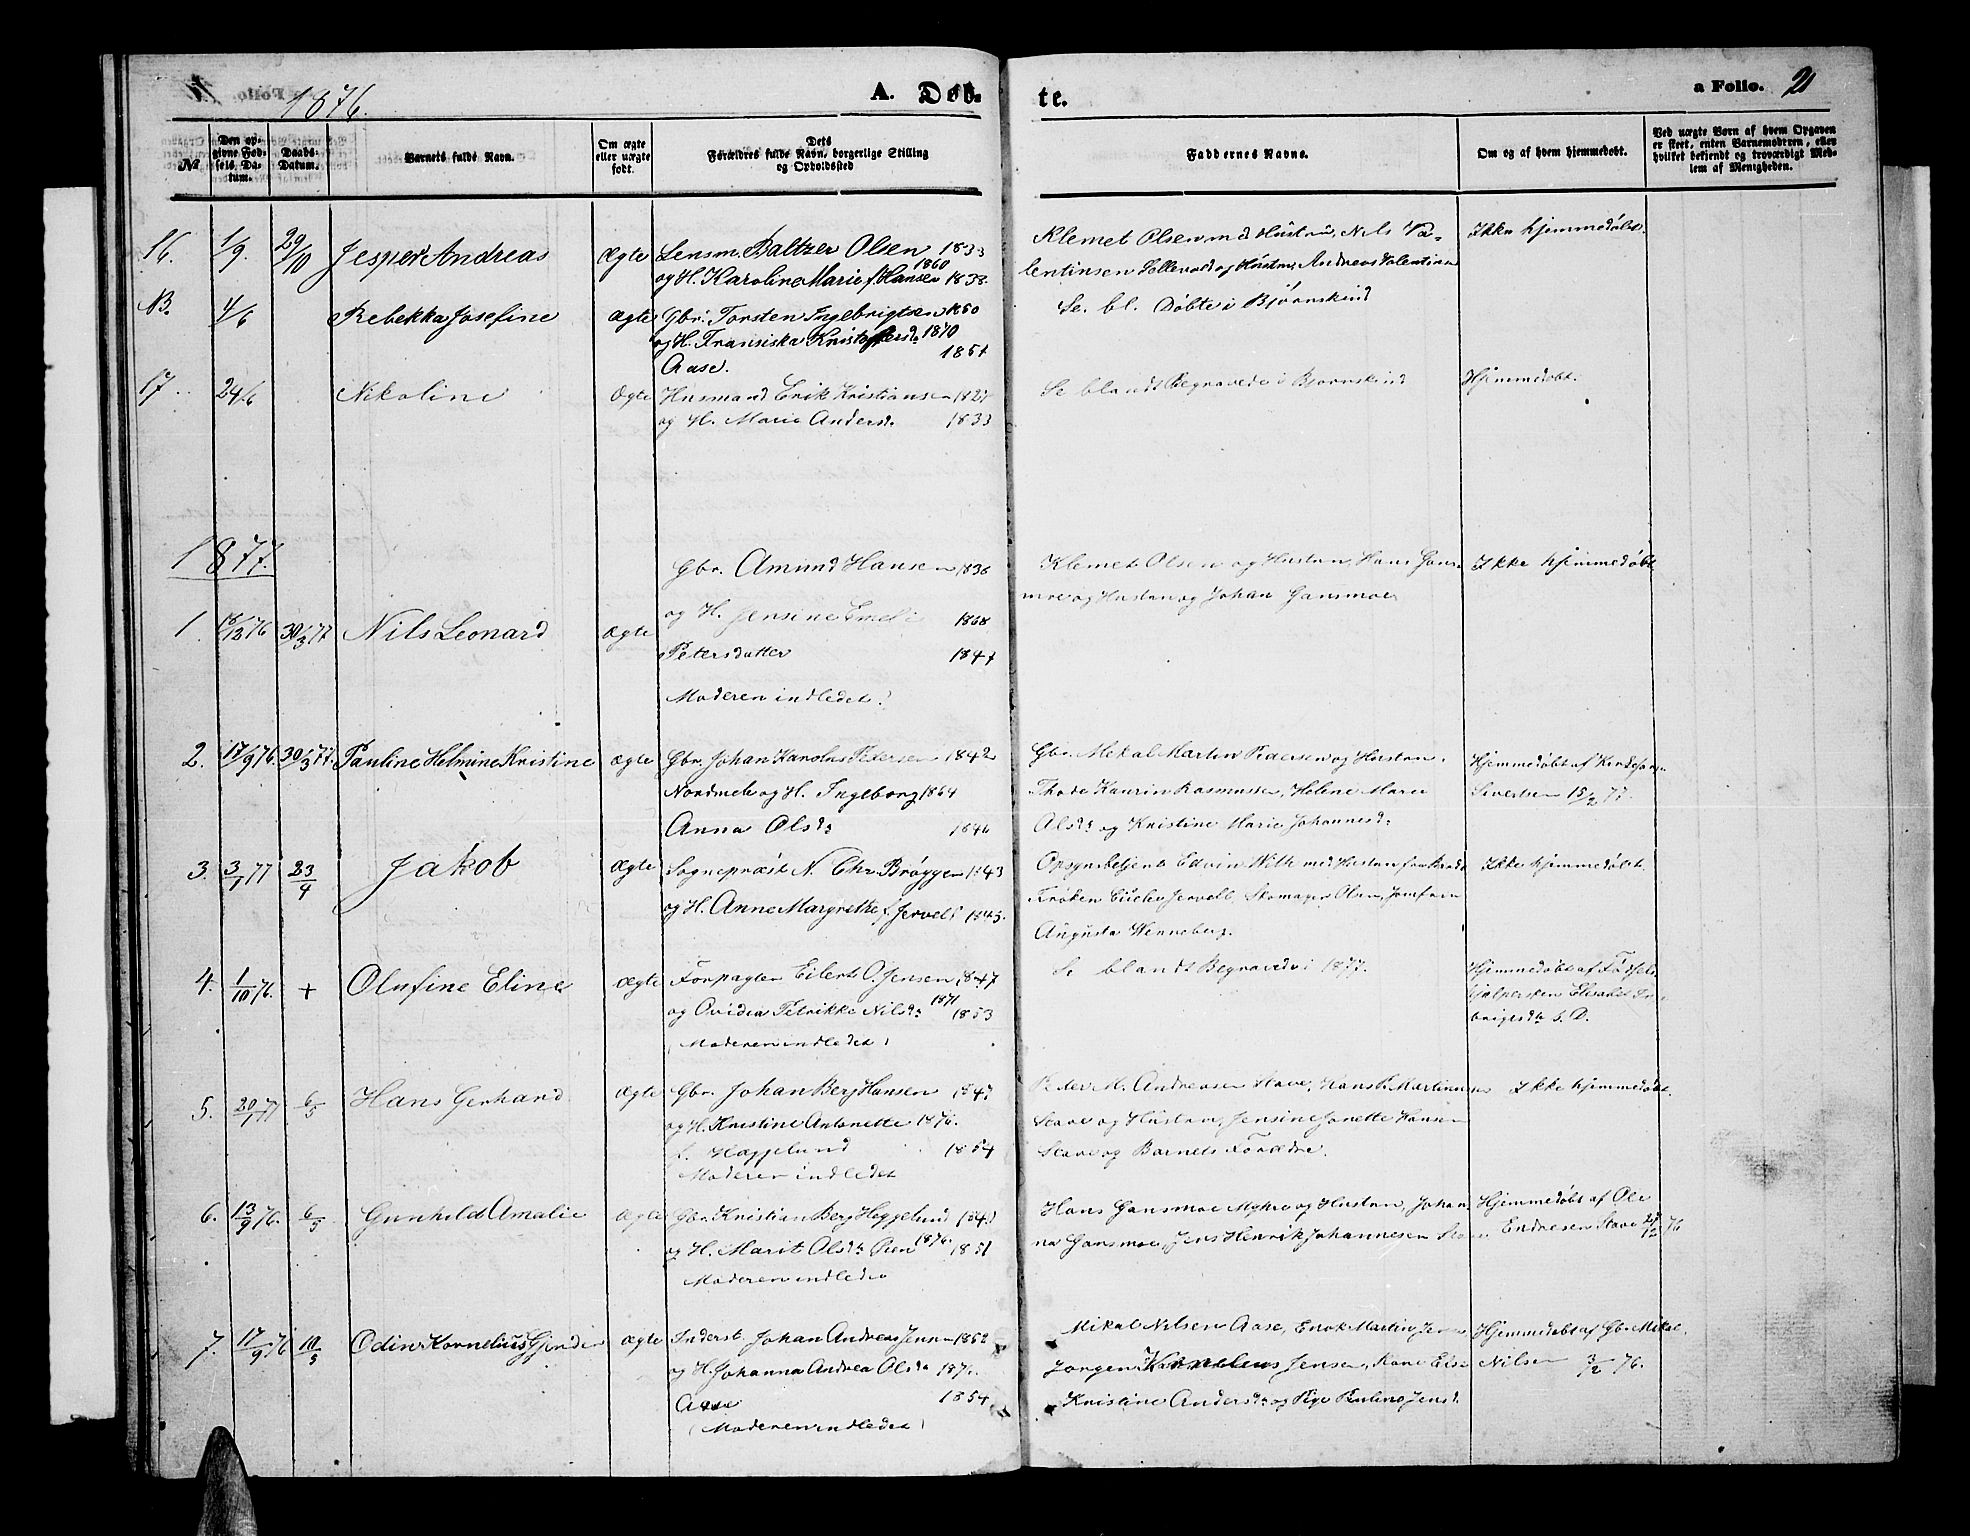 1876.
A. Døb-
te.
a Folio. 2
№
Den op-
givne Fød-
sels Da-
tum.
Daabs-
Datum.
Barnets fulde Navn.
Om ægte
eller uægte
født.
Dets
Forældres fulde Navn, borgerlige Stilling
og Opholdssted
Faddernes Navne.
Om og af hvem hjemmedøbt.
Ved uægte Børn af hvem Opgaven
er skeet, enten Barnemoderen, eller
hvilket bekjendt og troværdigt Med-
lem af Menigheden.
16. 1/9. 29/10 Jesper Andreas Ægte Lensm. Baltzer Olsen 1833
og H. Karoline Marie f. Hansen 1860 1838.
Klemet Olsen md Hustru, Nils Va-
lentinsen og Hustru, Andreas Valentinsen
Ikke hjemmedøbt.
NB. 4/6 Rebekka Josefine Ægte Gbr. Torsten Ingebrigtsen 1850
og H. Fransiska Kristoffersd. 1870
Aase. 1851
Se. bl. Døbte i Bjørnskind
17 24/6 Nikoline Ægte Husmand Erik Kristiansen 1827
og H. Marie Andersd. 1833
Se blandt Begravede i Bjørnskind
Hjemmedøbt.
1877.
1. 18/12 76 30/3 77 Nils Leonard Ægte
Gbr. Amund Hansen 1836
og H. Jensine Emeli 1868
Petersdatter 1847
Moderen indledet.
Klemet Olsen og Hustru, Hans Gans-
moe og Hustru og Johan Gansmoe
Ikke hjemmedøbt
2. 17/9 76. 30/3 77. Pauline Helmine Kristine Ægte Gbr. Johan Karolus Pedersen 1842
Nordmele og H. Ingeborg 1864
Anna Olsdr 1846
Gbr. Mekal Martin Pedersen og Hustru,
Thode Kaurin Rasmussen, Helene Marie
Olsdr og Kristine Marie Johannesdr
Hjemmedøbt af Kirkesanger
Sivertsen 15/2 77.
3. 3/1 77 23/4 Jakob Ægte Sognepræst N. Chr. Brøgger 1843
og H. Anne Margrethe f. Jervell 1845.
Opsynsbetjent Edvin With med Hustru
Frøken Jervell, Skomager Olsen, Jomfruen
Augusta Wenneberg.
Ikke hjemmedøbt.
4. 1/10 76. + Olufine Eline Ægte Forpagter Eilert O. Jensen 1847
og Ovidia Petrikke Nilsdr 1871 1853
(Moderen indledet)
Se blandt Begravede i 1877.
Hjemmedøbt af Fødsels-
hjælpersken Elisabet In-
brigtsdr s. D.
5. 20/1 77 6/5 Hans Gerhard Ægte Gbr. Johan Berg Hansen 1847
og H. Kristine Antonette 1876.
f. Heggelund 1854
Moderen indledet
Peder M. Andreasen Stave, Hans P. Martinsen
Stave og Hustru, Jensine Jonette Hansen
Stave og Barnets Forældre.
Ikke hjemmedøbt.
6. 13/9 76. 6/5 Gunhild Amalie Ægte Gbr. Kristian Berg Heggelund
og H. Marit Olsdr Øien 1876. 1851
Moderen indledet
Hans Gansmoe Myhre og Hustru, Johan-
na Gansmoe, Jens Henrik Johannesen Stave.
Hjemmedøbt af Ole
Endresen Stave 76
7. 17/9 76 10/5 Odin Kornelius Gjender Ægte Inderst. Johan Andreas Jensen 1852
og H. Johanna Andrea Olsdr 1876.
Aase 1854
(Moderen indledet)
Mikal Nilsen Aase, Enok Martin Jensen
Jørgen Kornelius Jensen, Kone Else
Kristine Andersdr og Pige Pauline Jensd.
Hjemmedøbt af Gbr. Mikal
Nilsen 3/2 76.